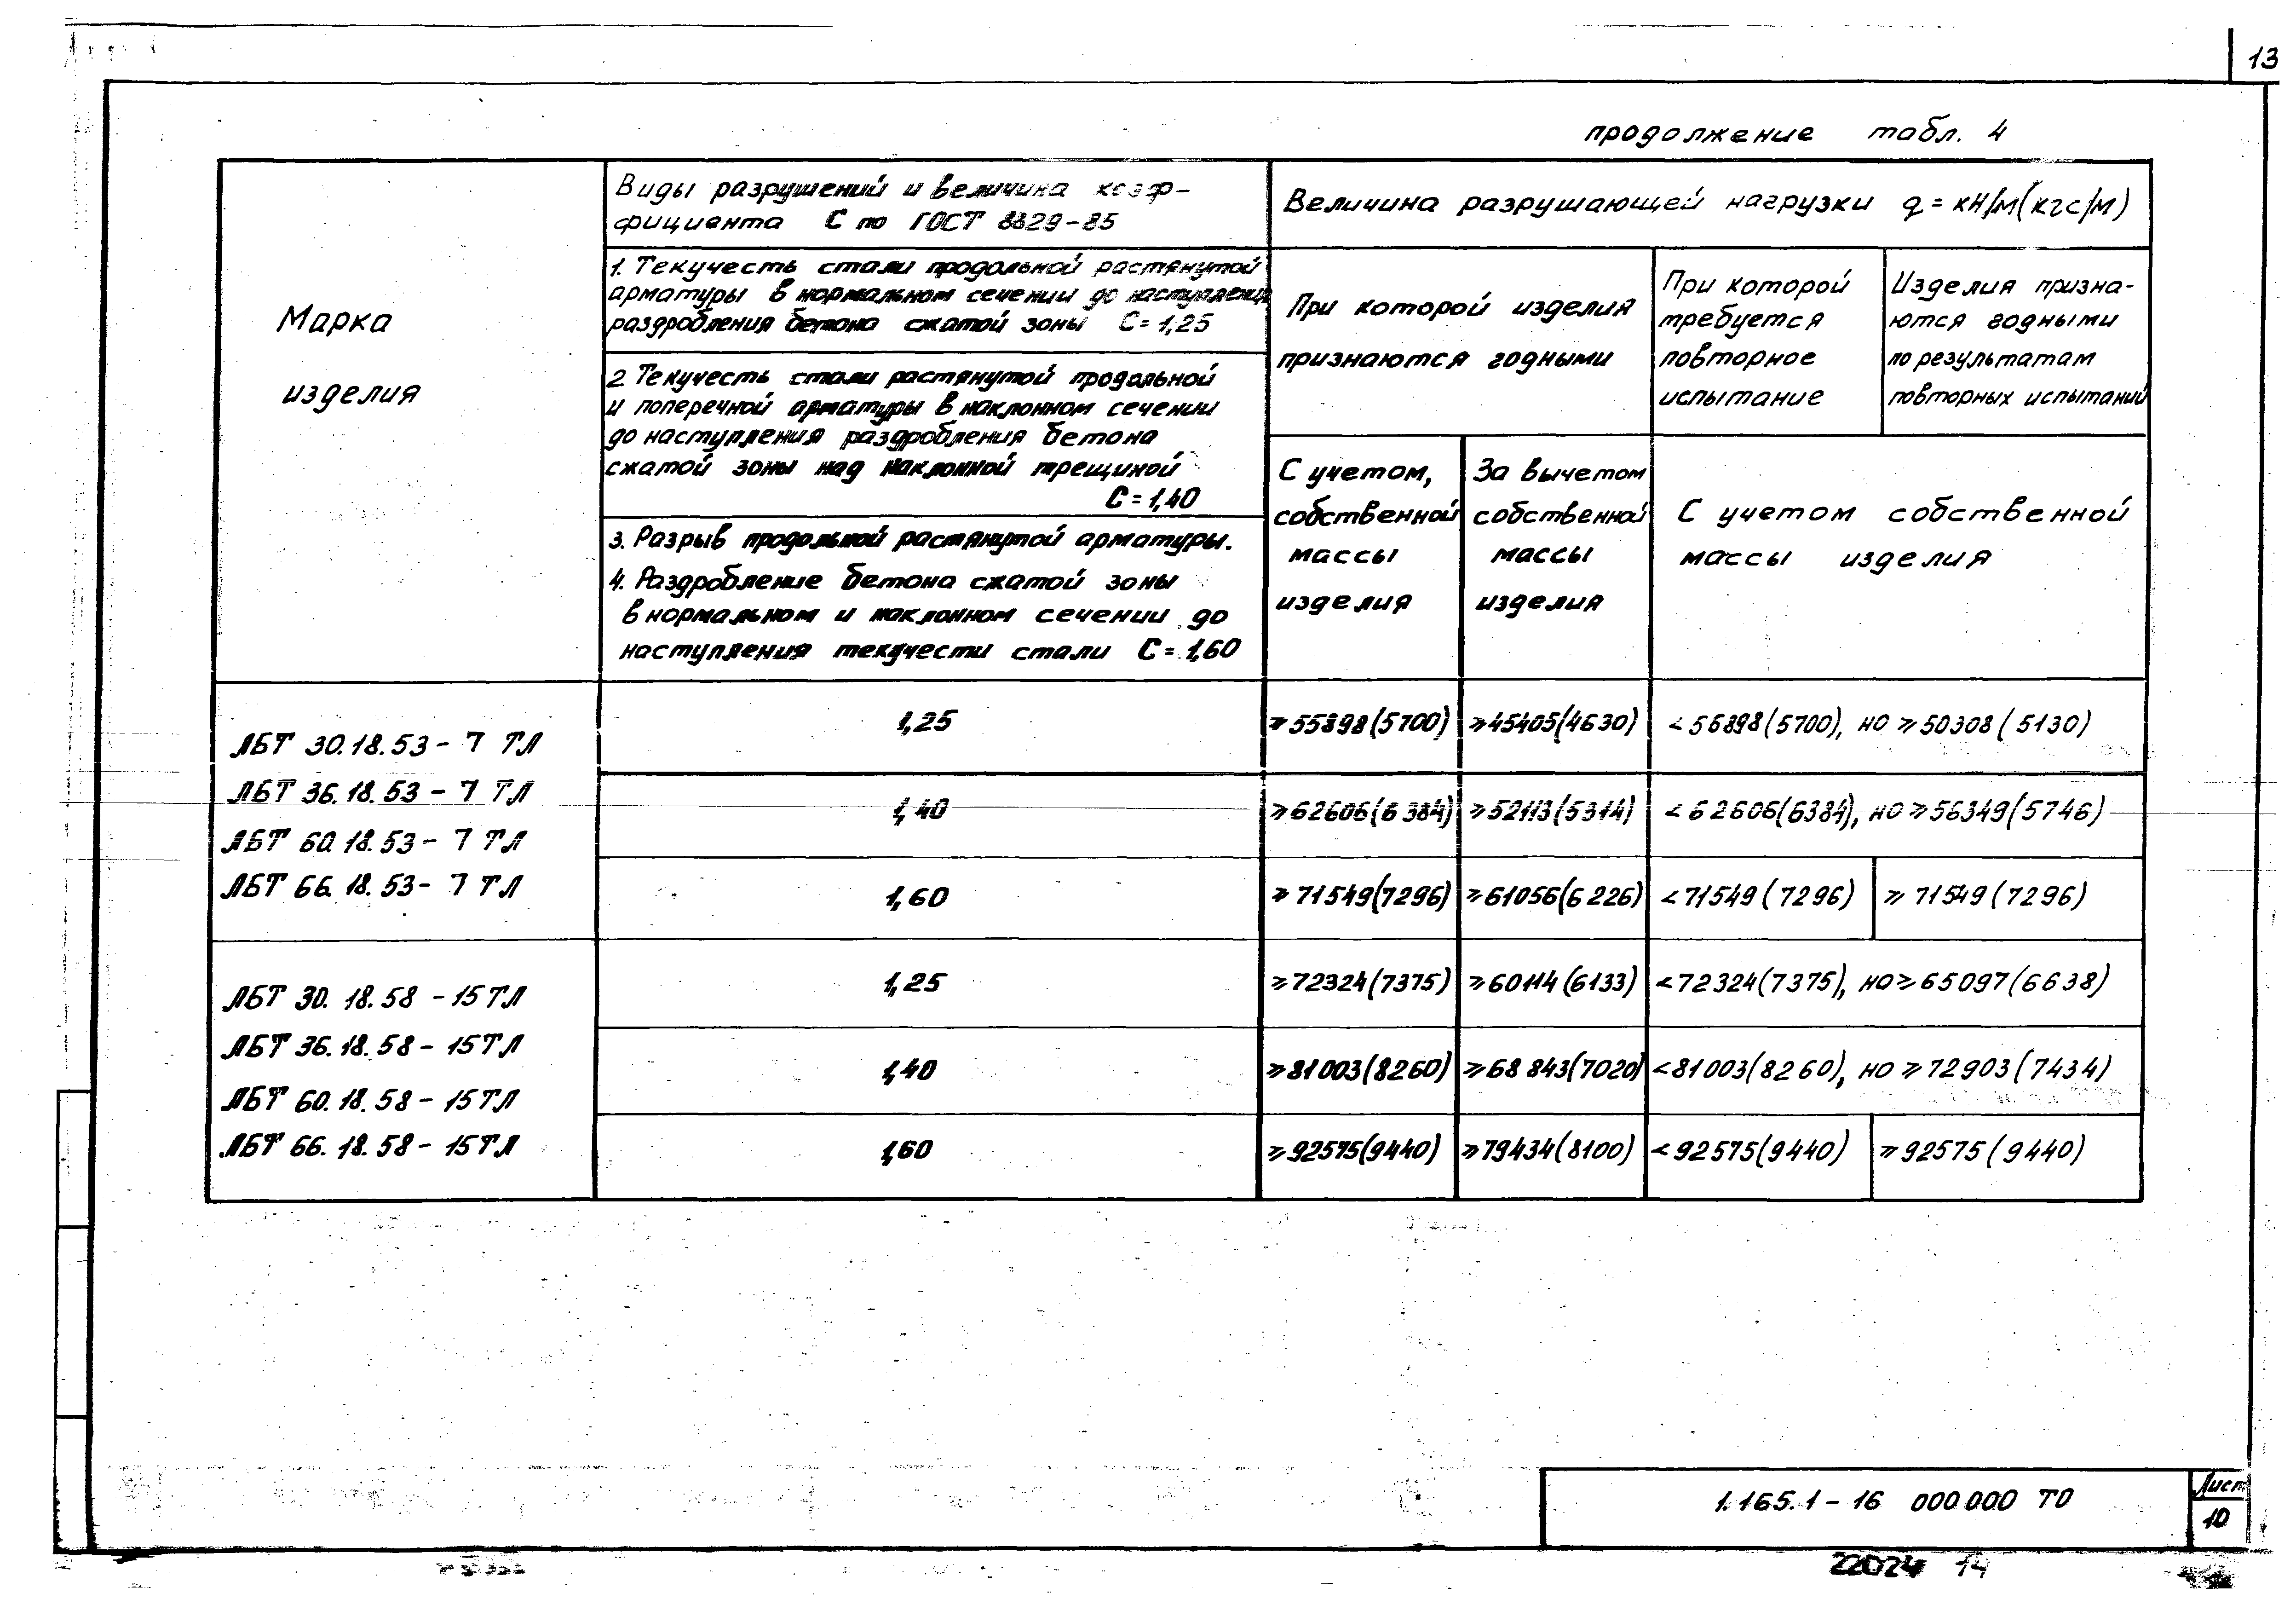 13
продолжение табл. 4
Марка
изделия
Виды разрушений и величина коэф-
фициента С по ГОСТ 8829-85
1. Текучесть стали продольной растянутой
арматуры в нормальном сечении до наступления
раздробления бетона сжатой зоны С=1,25
2 Текучесть стали растянутой продольной
и поперечной арматуры в наклонном сечении
до наступления раздробления бетона
сжатой зоны над наклонной трещиной
С=1,40
3. Разрыв продольной растянутой арматуры.
4. Раздробление бетона сжатой зоны
в нормальном и наклонном сечении до
наступления текучести стали С=1,60
Величина разрушающей нагрузки q=кН/м(кгс/м)
При которой изделия
признаются годными
При которой
требуется
повторное
испытание
Изделия призна-
ются годными
по результатам
повторных испытаний
С учетом,
собственной
массы
изделия
За вычетом
собственной
массы
изделия
С учетом собственной
массы изделия
ЛБТ 30.18.53-7 ТЛ
ЛБТ 36.18.53-7 ТЛ
ЛБТ 60.18.53-7 ТЛ
ЛБТ 66.18.53-7 ТЛ
1,25 ⩾55898(5700) ⩾45405(4630) <56898(5700), но ⩾50308(5130)
1,40 ⩾62606(6384) ⩾52113(5314) <62606(6384), но ⩾56349(5746)
1,60 ⩾71549(7296) ⩾61056(6226) <71549(7296) ⩾71549(7296)
ЛБТ 30.18.58-15ТЛ
ЛБТ 36.18.58-15ТЛ
ЛБТ 60.18.58-15ТЛ
ЛБТ 66.18.58-15ТЛ
1,25 ⩾72324(7375) ⩾60144(6133) <72324(7375), но ⩾65097(6638)
1,40 ⩾81003(8260) ⩾68843(7020) <81003(8260), но ⩾72903(7434)
1,60 ⩾92575(9440) ⩾79434(8100) <92575(9440) ⩾92575(9440)
1.165.1-16 000.000 ТО
Лист
10
22024 14